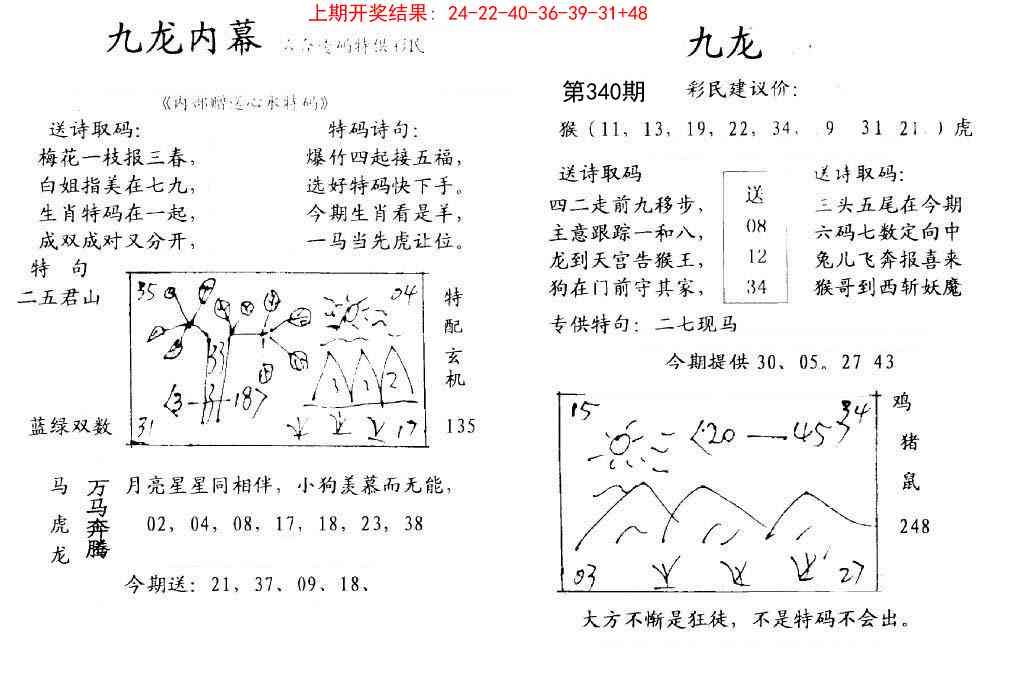 上期开奖结果：24-22-40-36-39-31+48
九龙内幕
《内部赠送心水特码》
送诗取码：
梅花一枝报三春，
白姐指美在七九，
生肖特码在一起，
成双成对又分开，
特码诗句：
爆竹四起接五福，
选好特码快下手。
今期生肖看是羊，
一马当先虎让位。
特 句
二五君山
蓝绿双数
35
04
33
3
1
1
2
〈3——187
31
17
特配玄机
135
马虎龙
万马奔腾
月亮星星同相伴，小狗羡慕而无能，
02，04，08，17，18，23，38
今期送：21，37、09、18、
九龙
第340期
彩民建议价：
猴（11，13，19，22，34， 9 31 21.）虎
送诗取码
四二走前九移步，
主意跟踪一和八，
龙到天宫告猴王，
狗在门前守其家，
送
08
12
34
送诗取码：
三头五尾在今期
六码七数定向中
兔儿飞奔报喜来
猴哥到西斩妖魔
专供特句：二七现马
今期提供 30、05。27 43
15
34
〈20——45〉
03
27
鸡
猪
鼠
248
大方不惭是狂徒，不是特码不会出。